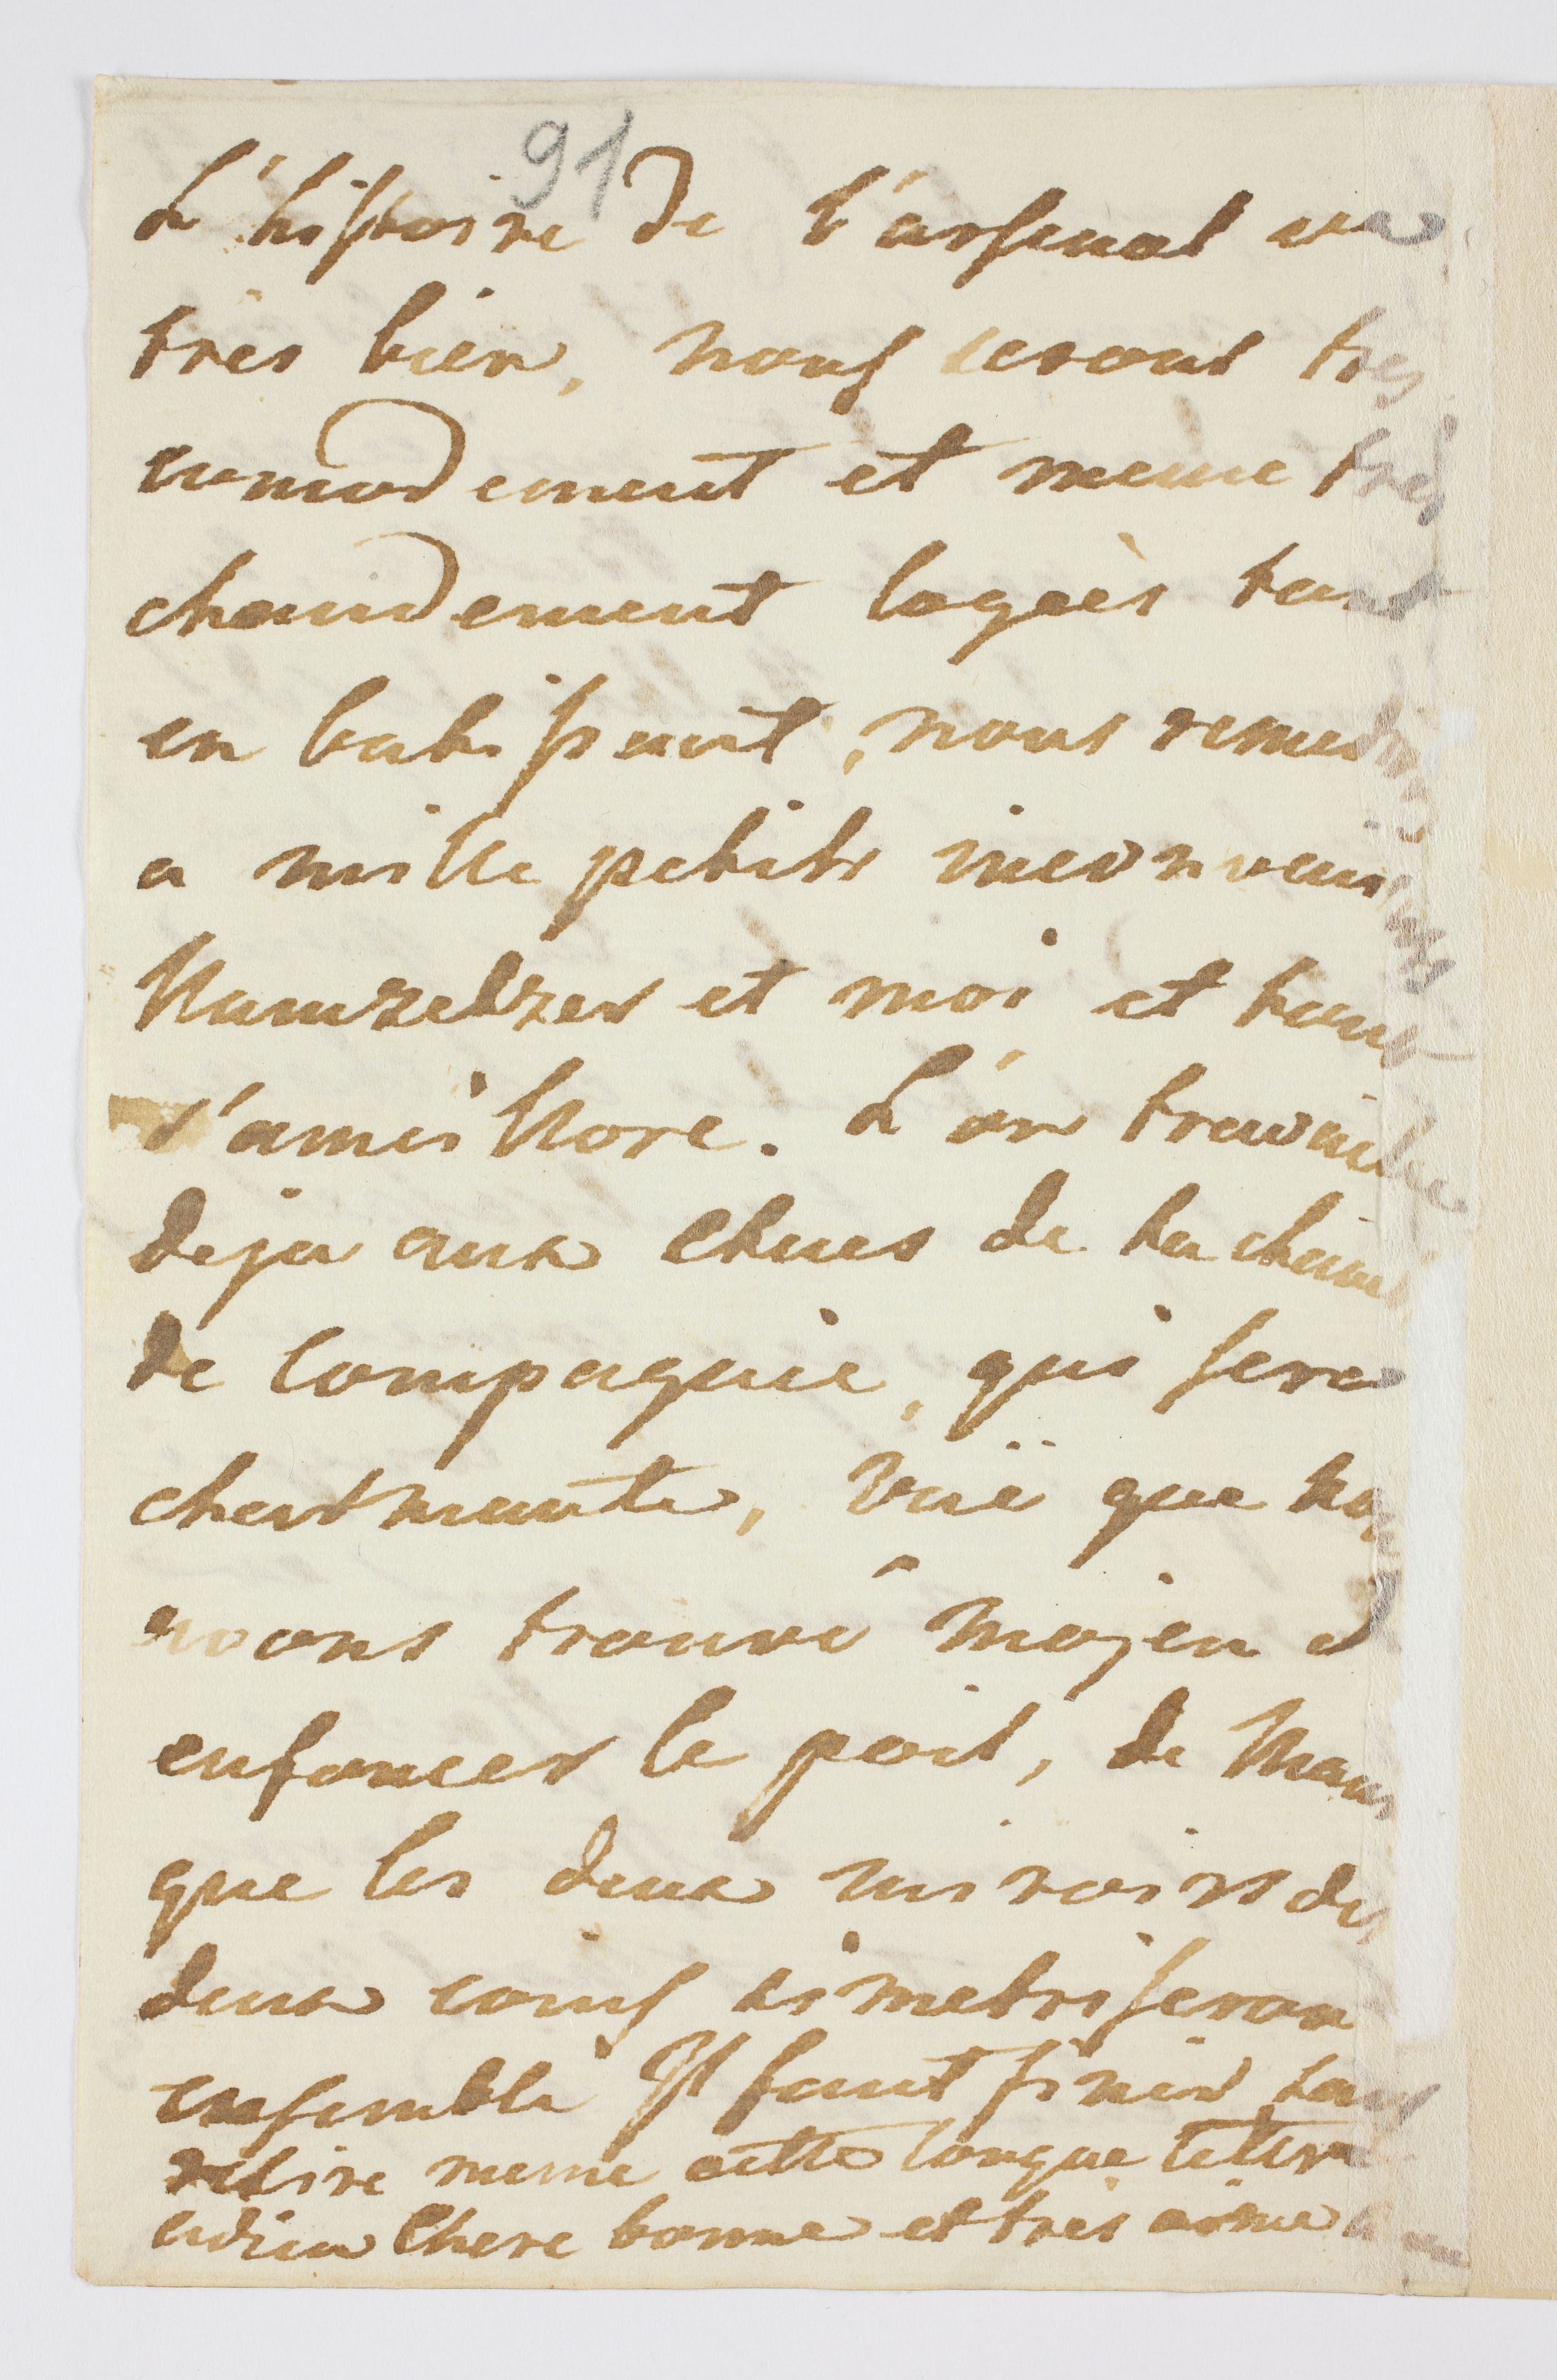 91
L'histoire de l'arsenal va
tres bien, nous serons tres
comodement et meme tres
chaudement logeès tant
en batissant, nous remedions
a mille petits inconveniens
Kamzelzer et moi et tout
s'ameillore. L'on travaille
deja aux
de la
de Compagnie, qui sera
charmante, vuë que nous
avons trouvé mojen d
enfoncer le poil, de
que les deux miroirs des
deux coins simetriseron
ensemble Il faut finir sans
relire meme cette longue lettre
adieu Chere bonne et tres aimé